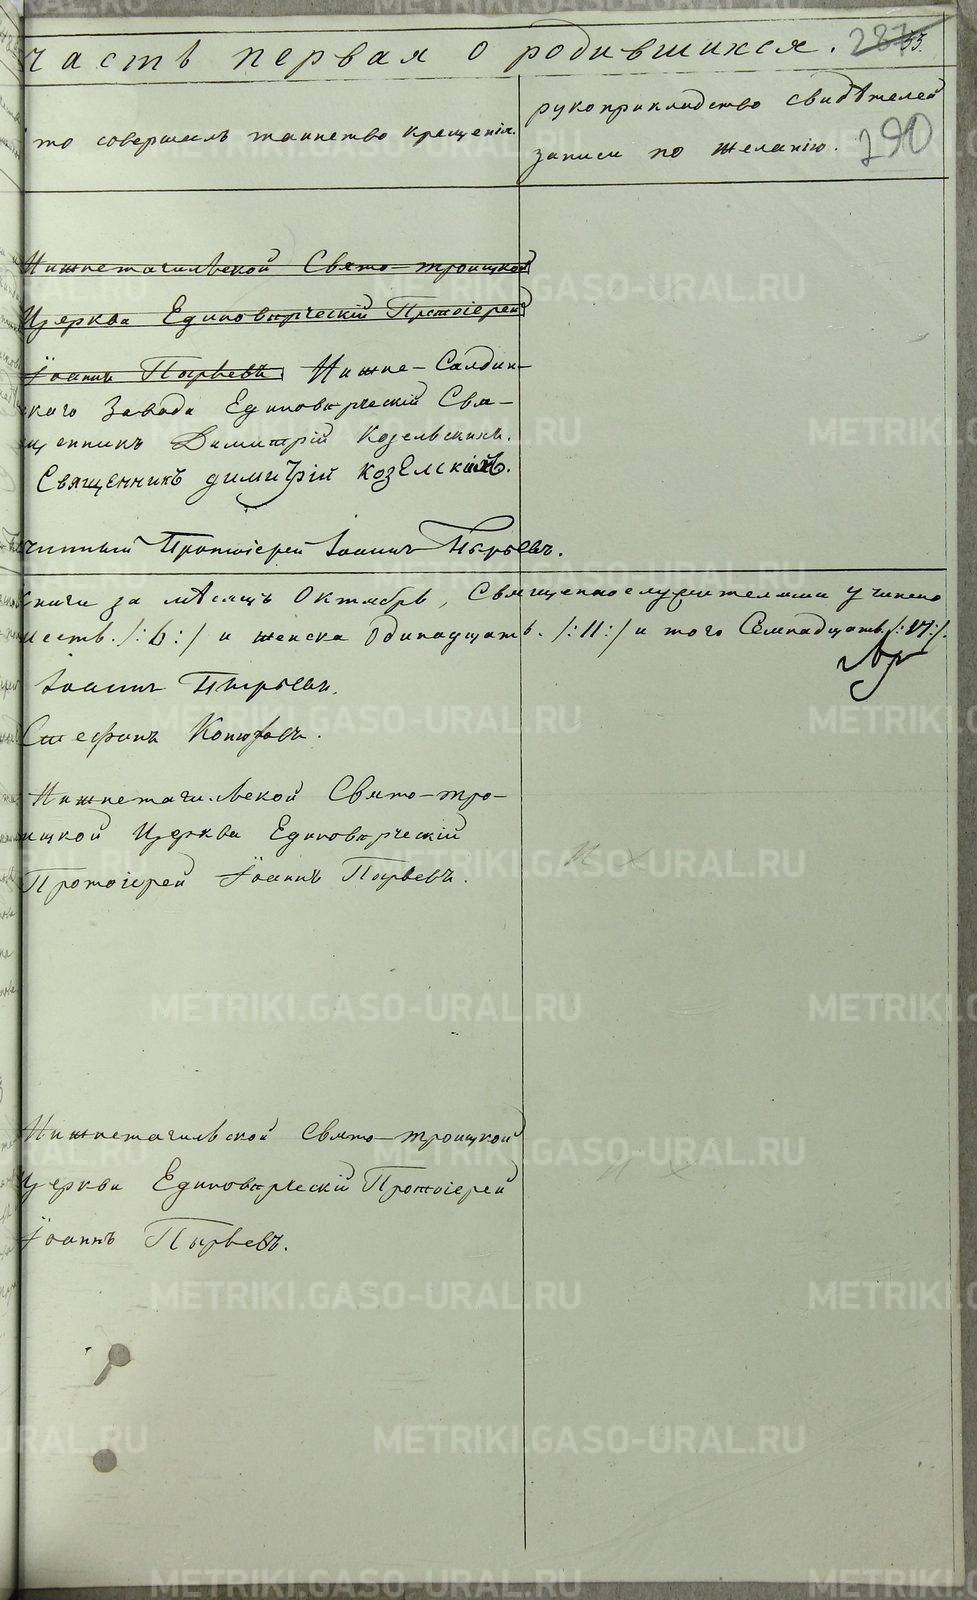 часть первая о родившихся. 287 55.
то совершалъ таинство крещенія.
рукоприкладство свидѣтелей
записи по желанію. 290
Нижнетагильской Свято-троицкой
Церкви Единовѣрческій Протоіерей
Іоаннъ Пырьевъ Нижне-Салдин-
скаго Завода Единовѣрческій Свя-
щенникъ Димитрій Козельскихъ.
Священникъ димитрій козЕлскихъ.
чинный Протоіерей Іоаннъ Пырьевъ.
книги за мѣсяцъ Октябрь, Священнослужителями учинено
шесть. /:6:/ и женска Одинадцать. /:11:/ и того Семнадцать /:17:/.
Іоаннъ Пырьевъ.
Стефанъ Конюховъ.
Нижнетагильской Свято-тро-
ицкой Церкви Единовѣрческій
Протоіерей Іоаннъ Пырьевъ.
Нижнетагильской Свято-троицкой
Церкви Единовѣрческій Протоіерей
Іоаннъ Пырьевъ.
METRIKI.GASO-URAL.RU